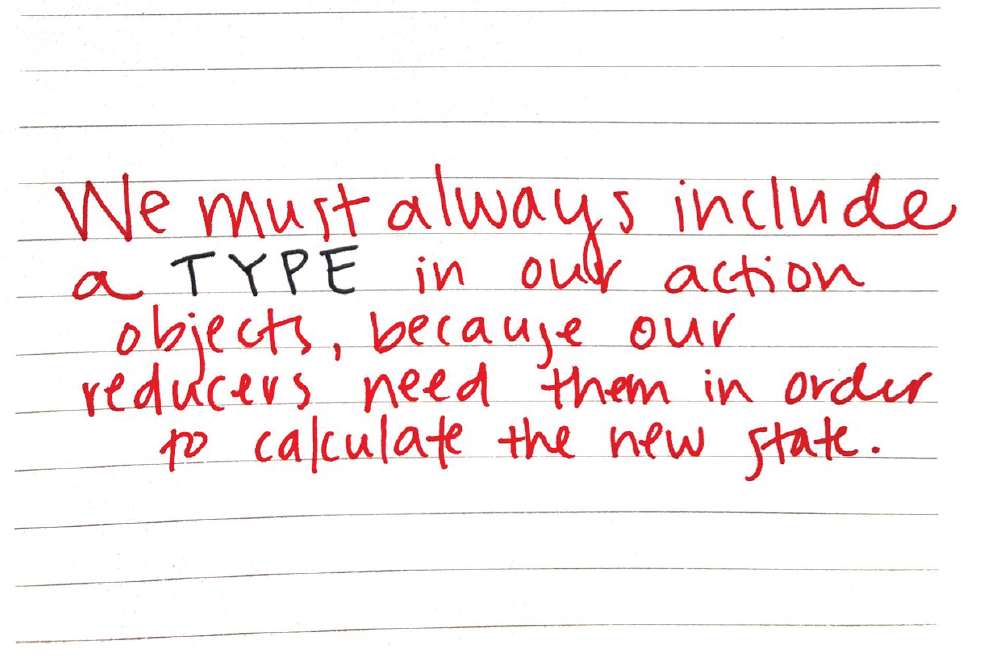 We must always include
a TYPE in our action
objects, because our
reducers need them in order
to calculate the new state.